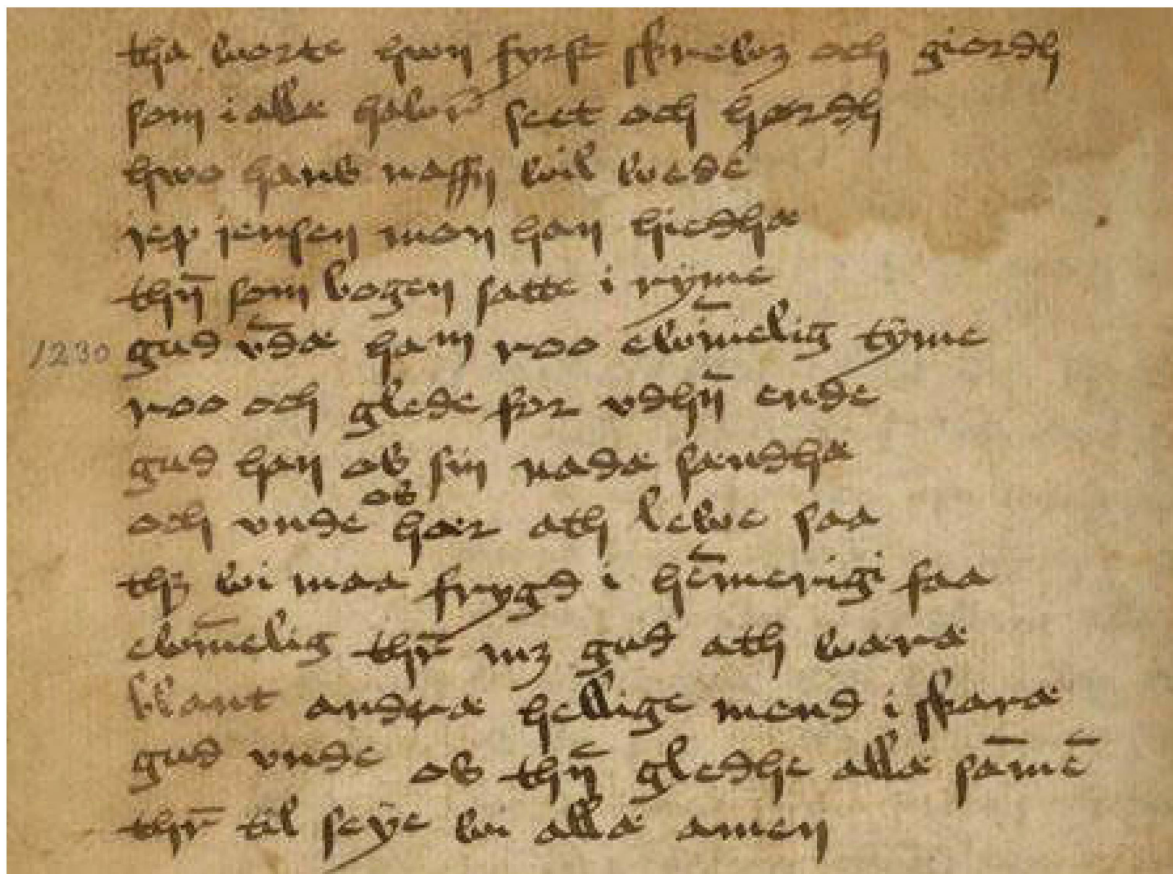 tha worte hwn fyrst skrewꝫ och giordh
som i allæ hawer seet och hørdh
hwo hans naffn wil wede
iep iensen mon han hiedhæ
thn̄ som bogen satte i ryme
1230 gud vn̄dæ ham roo ewīmelig tyme
roo och glede for vdhn̄ ende
gud han os sin nadæ sændhæ
och vnde os hær ath lewe saa
thꝫ wi maa frygd i hēmerigi faa
ewīmelig thr̄ mꝫ gud ath wæræ
blant andræ hellige mend i skaræ
gud vnde os thn̄ gledhe allæ sāmē
thr̄ til seye wi allæ amen